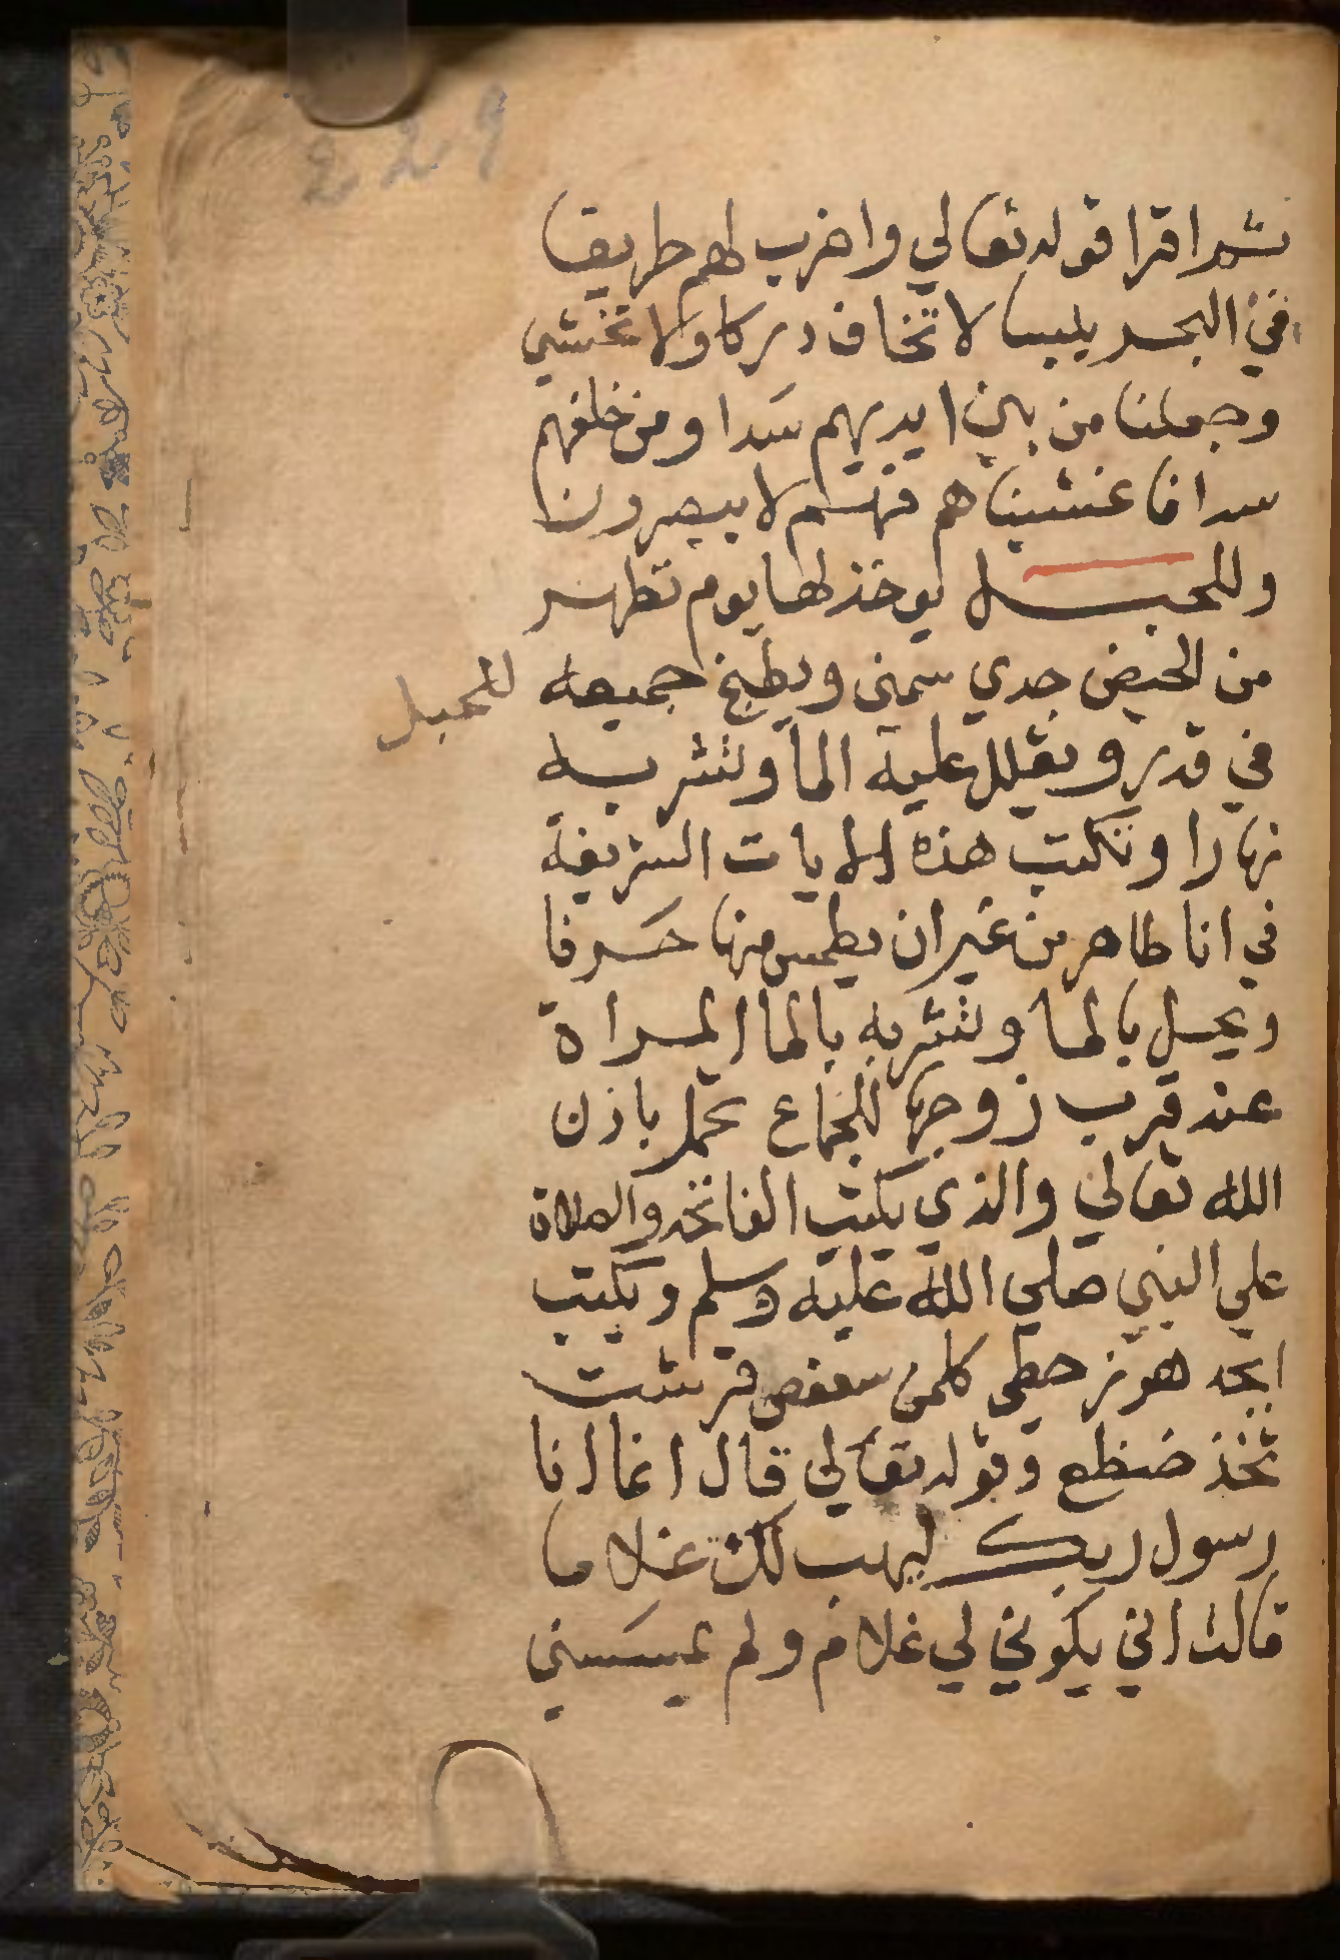 229
ثم اقرا قوله تعالي واضرب لهم طريقا
في البحر يبسا لا تخاف دركا ولا تخشي
وجعلنا من بين ايديهم سدا ومن خلفهم
سدا فاغشيناهم فهم لا يبصرون
وللحبل يوخذ لها يوم تطهر
من الحيض جدي سمين ويطبخ جميعه
للحبل
في قدر ويقلل عليه الما وتشربه
نهارا وتكتب هذه الايات الشريفة
في انا طاهر من غير ان يطمس منها حرفا
ويحل بالما وتشربه بالما المراة
عند قرب زوجها للجماع تحمل باذن
الله تعالي والذي يكتب الفاتحه والصلاة
علي النبي صلي الله عليه وسلم ويكتب
ابجد هوز حطي كلمن سعفص قرشت
ثخذ ضظع وقوله تعالي قال انما انا
رسول ربك ليهب لك غلاما
قالت اني يكون لي غلام ولم يمسسني